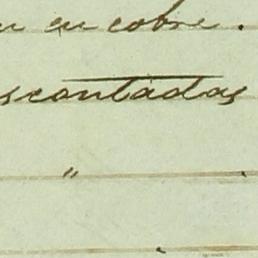 en cobre.
scontadas
"